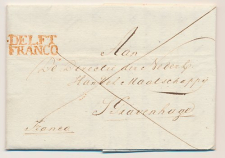 DELFT
FRANCO
Aan
De Directie der Nederl.
Handel Maatschappij
S Gravenhage
Franco